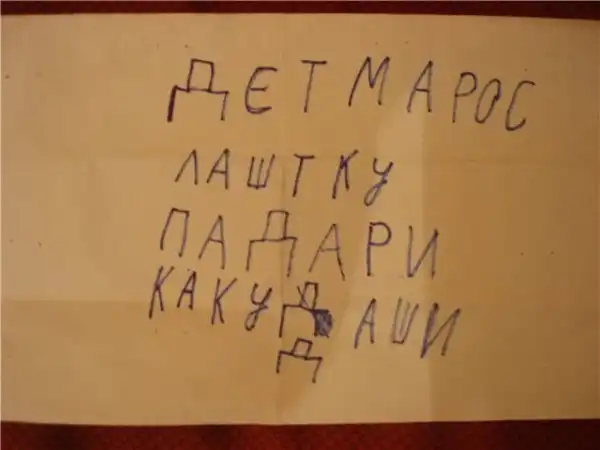 ДЕТМАРОС
ЛАШТКУ
ПАДАРИ
КАКУДАШИ
Д